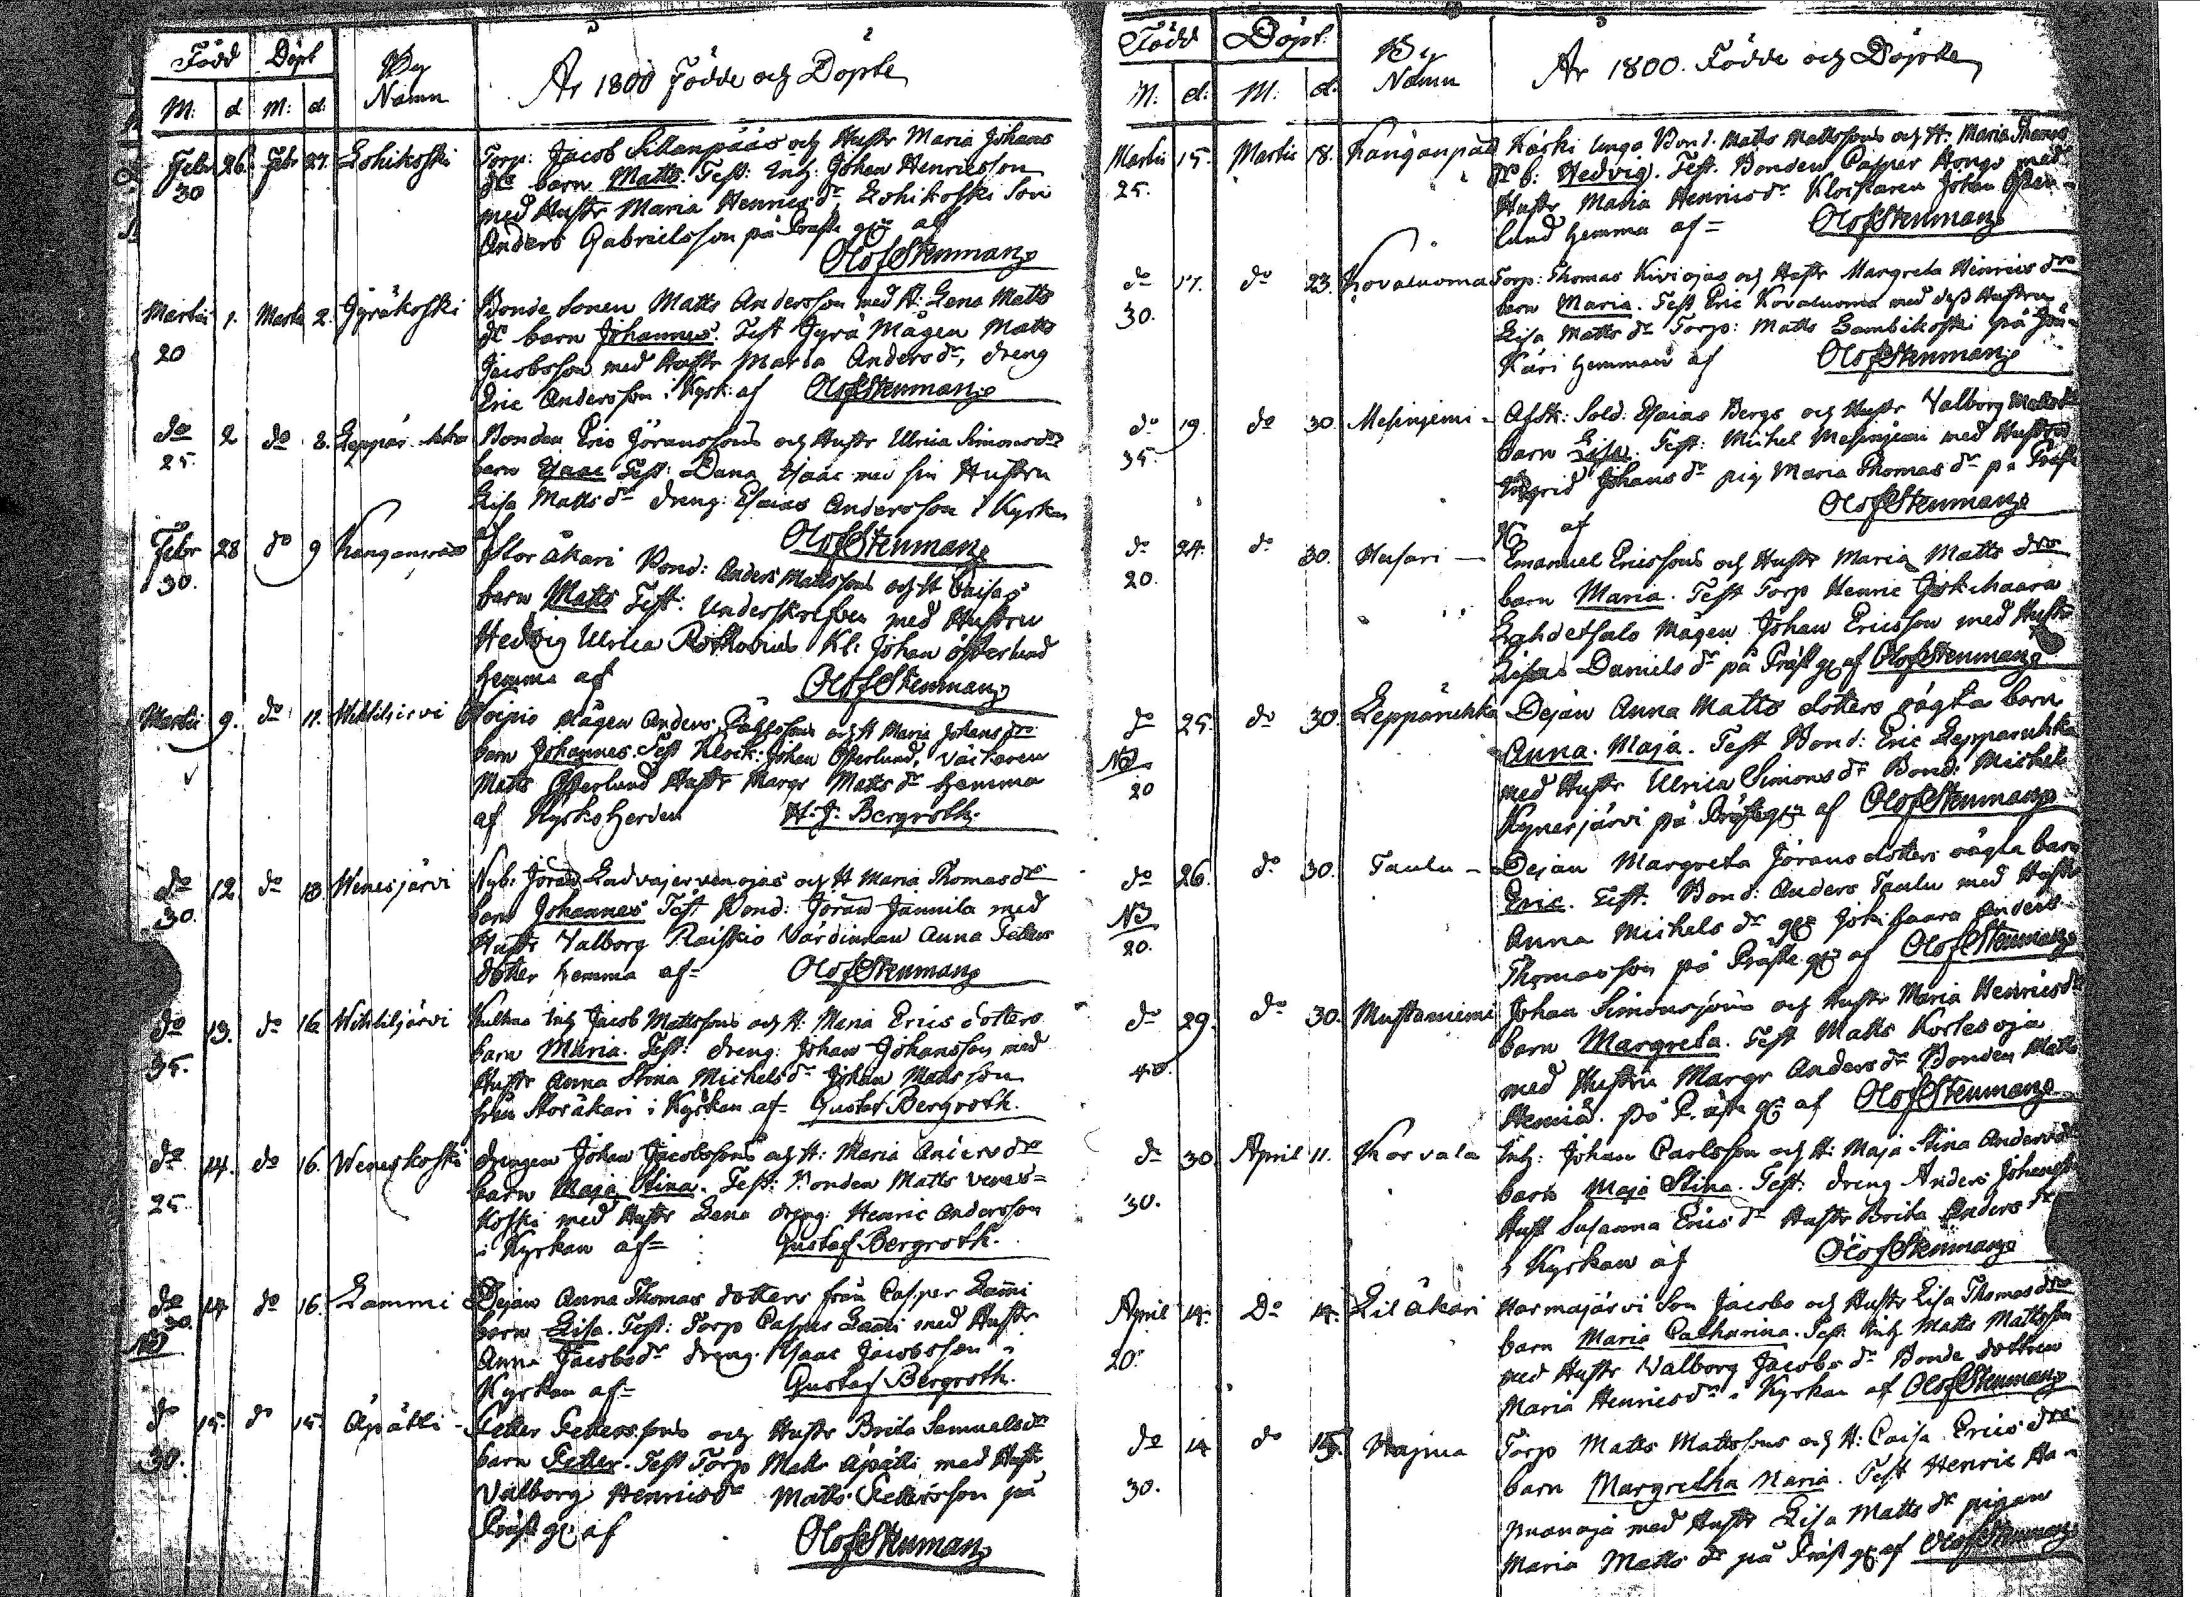 Född Döpt By Namn År 1800 Födde och Döpte
M: d M: d:
Febr 26. Febr 27. Lohikoski Torp: Jacob Sillanpääs och Hustr Maria Johans
30 dr barn Matts. Test: Inh: Johan Henricsson
med Hustr Maria Henrics dr Lohikoski Son
Anders Gabrielsson på Präste gn af
Olof Stenman
Martii 1. Martii 2. Jyräkoski Bonde Sonen Matts Andersson med H: Lena Matts
20 dr barn Johannes. Test Jyrä Mågen Matts
Jacobsson med Hustr Maria Anders dr, dreng
Eric Andersson i Kyrk: af Olof Stenman
do 2 do 8. Leppär Bonden Eric Göranssons och Hustr Ulrica Simons dr
25. barn Isaac Test: Dana Isaac med sin Hustru
Lisa Matts dr dreng: Esaias Andersson i Kyrkan
af Olof Stenman
Febr 28 do 9 Kanganpää Storäkari Bond: Anders Mattssons och H Caisas
30. barn Matts Test: Underskrefven med Hustru
Hedvig Ulrica Rothovius Kl: Johan Österlund
hemma af Olof Stenman
Martii 9. do 11. Wihtiljärvi Knipio Mågen Anders och H Maria Johans dr
barn Johannes. Test Klock: Johan Österlund,
Matts Österlund Hustr Margr Matts dr hemma
af Kyrkoherden H: J: Bergroth
do 12 do 13 Wenesjärvi Nyb: Jöran och H Maria Thomas dr
30. barn Johannes Test Bond: Jöran Jannila med
Hustr Valborg Raiskio Värdinnan Anna Petters
dotter hemma af= Olof Stenman
do 13. do 16 Wihtiljärvi Inh Jacob Mattssons och H: Maria Erics dotters
35. barn Maria. Test: dreng: Johan Johansson med
Hustr Anna Stina Michels dr Johan Matsson
från Storäkari i Kyrkan af= Gustaf Bergroth.
do 14. do 16. Weneskoski drengen Johan Jacobssons och H: Maria Anders dr
25. barn Maja Stina. Test: Bonden Matts Venes=
koski med Hustr Lena dreng: Henric Andersson
i Kyrkan af= Gustaf Bergroth.
do 14 do 16. Lammi Dejan Anna Thomas dotters från Casper Lammi
30. barn Lisa. Test: Torp Casper Lammi med Hustr
NB Anna Jacobs dr dreng. Isaac Jacobsson i
Kyrkan af= Gustaf Bergroth.
do 15. do 15. Äpätti - Petter Petterssons och Hustr Brita Samuels dr
30. barn Petter. Test Torp Matts Äpätti med Hustr
Valborg Henrics dr Matts Pettersson på
Präst gn af
Olof Stenman
Född Döpt: By Namn År 1800. Födde och Döpte
M: d: M: d:
Martii 15. Martii 18. Kanganpää Käski unga Bond. Matts Mattssons och H: Maria Thomas
25. dr b: Hedvig. Test. Bonden Casper Hongo med
Hustr Maria Henrics dr Klockaren Johan Öster=
lund hemma af= Olof Stenman
do 17. do 23. Kovaluoma Torp: Thomas Kiviojas och Hustr Margreta Henrics dr
30. barn Maria. Test Eric Kovaluoma med dess Hustru
Lisa Matts dr Torp: Matts Lambikoski på
Käri hemman af Olof Stenman
do 19. do 30. Mesiniemi - Afsk: Sold: Esaias Bergs och Hustr Valborg Matts dr
35. barn Lisa. Test: Michel Mesiniemi med Hustru
Ingrid Johans dr pig Maria Thomas dr på Präst
gn af Olof Stenman
do 24. do 30. Husari - Emanuel Ericssons och Hustr Maria Matts dr
20. barn Maria. Test Torp Henric Jokihaara
Lahdesalo Mågen Johan Ericsson med Hustr
Lisa Daniels dr på Präst gn af Olof Stenman
do 25. do 30 Leppäruhka Dejan Anna Matts dotters oägta barn
NB Anna. Maja. Test Bond: Eric Leppäruhka
20 med Hustr Ulrica Simons dr Bond: Michel
Kynesjärvi på Präste gn af Olof Stenman
do 26. do 30. Taulu - Dejan Margreta Jörans dotters oägta barn
NB Eric. Test. Bond: Anders Taulu med Hustr
20. Anna Michels dr Jokihaara Anders
Thomasson på Präste gn af Olof Stenman
do 29. do 30. Mustaniemi Johan Simonssons och Hustr Maria Henrics dr
40. barn Margreta. Test Matts Kortesoja
med Hustru Margr Anders dr Bonden Matts
på Präste gn af Olof Stenman
do 30 April 11. Korvala Inh: Johan Carlsson och H: Maja Stina Anders dr
30. barn Maja Stina. Test: dreng Anders Johanss
Hust Susanna Erics dr Hustr Brita Anders dr
i Kyrkan af Olof Stenman
April 14. Do 14. Liläkari Harmajärvi Son Jacobs och Hustr Lisa Thomas dr
20. barn Maria Catharina. Test: Inh Matts Mattsson
med Hustr Valborg Jacobs dr Bonde dottren
Maria Henrics dr i Kyrkan af Olof Stenman
do 14 do 15. Wajma Torp Matts Mattssons och H: Caisa Erics dr
30. barn Margretha Maria. Test Henric Ha=
puanoja med Hustr Lisa Matts dr pigan
Maria Matts dr på Präst gn af Olof Stenman